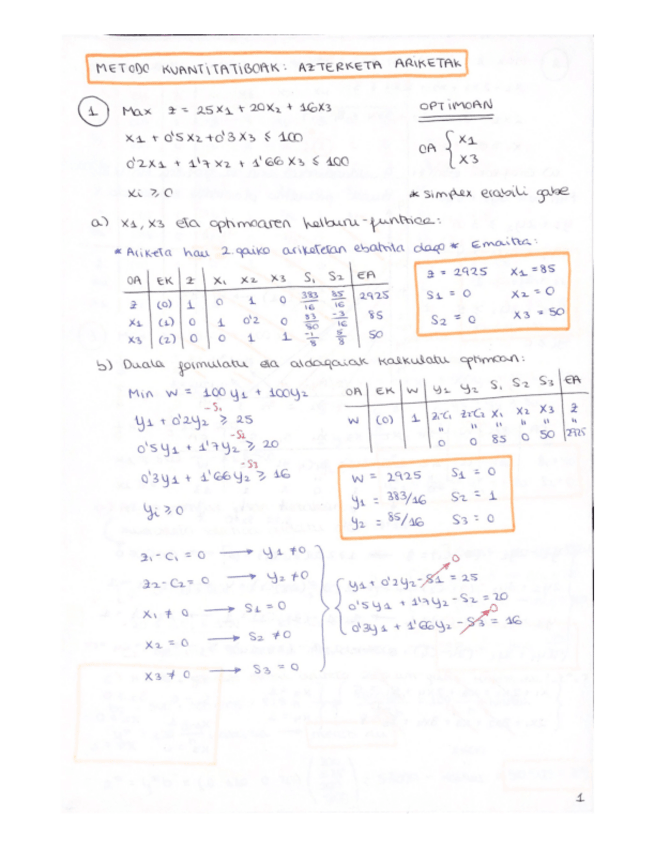 METODO KUANTITATIBOAK: AZTERKETA ARIKETAK
1 Max Z = 25X1 + 20X2 + 16X3 OPTIMOAN
X1 + 0'5X2 + 0'3X3 ≤ 100 OA { X1 X3
0'2X1 + 1'7X2 + 1'66X3 ≤ 100
Xi ≥ 0 * Simplex erabili gabe
a) X1, X3 eta optimoaren helburu-funtzioa:
* Ariketa hau 2. gaiko ariketetan ebatzita dago * Emaitza:
OA EK Z X1 X2 X3 S1 S2 EA
Z (0) 1 0 1 0 383/16 85/16 2925
X1 (1) 0 1 0'2 0 83/80 -3/16 85
X3 (2) 0 0 1 1 -1/8 5/8 50
Z = 2925 X1 = 85
S1 = 0 X2 = 0
S2 = 0 X3 = 50
b) Duala formulatu eta aldagaiak kalkulatu optimoan:
Min W = 100y1 + 100y2
y1 + 0'2y2 -S1 ≥ 25
0'5y1 + 1'7y2 -S2 ≥ 20
0'3y1 + 1'66y2 -S3 ≥ 16
yi ≥ 0
OA EK W y1 y2 S1 S2 S3 EA
W (0) 1 Z1-C1 Z2-C2 X1 X2 X3 Z
" " " " " "
0 0 85 0 50 2925
W = 2925 S1 = 0
y1 = 383/16 S2 = 1
y2 = 85/16 S3 = 0
Z1 - C1 = 0 → y1 ≠ 0
Z2 - C2 = 0 → y2 ≠ 0
X1 ≠ 0 → S1 = 0
X2 = 0 → S2 ≠ 0
X3 ≠ 0 → S3 = 0
0
y1 + 0'2y2 - S1 = 25
0'5y1 + 1'7y2 - S2 = 20
0
0'3y1 + 1'66y2 - S3 = 16
1